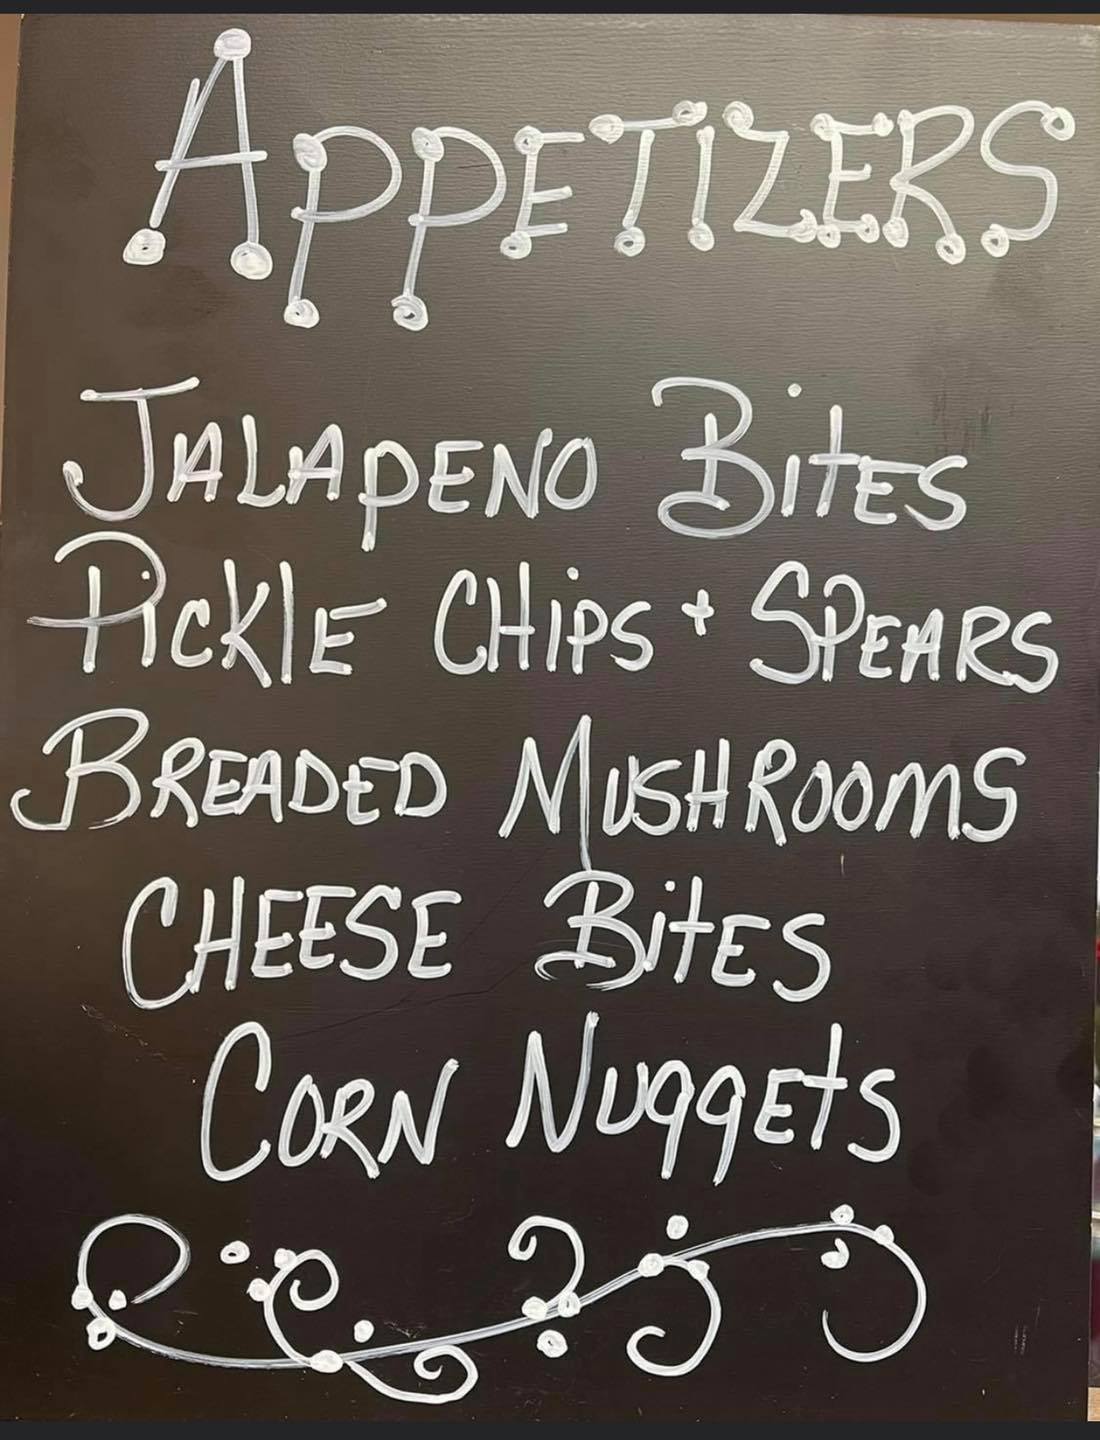 APPETIZERS
JALAPENO BitES
PiCKlE CHiPS + SPEARS
BREADED MUSHROOMS
CHEESE BitES
CORN NUggEtS